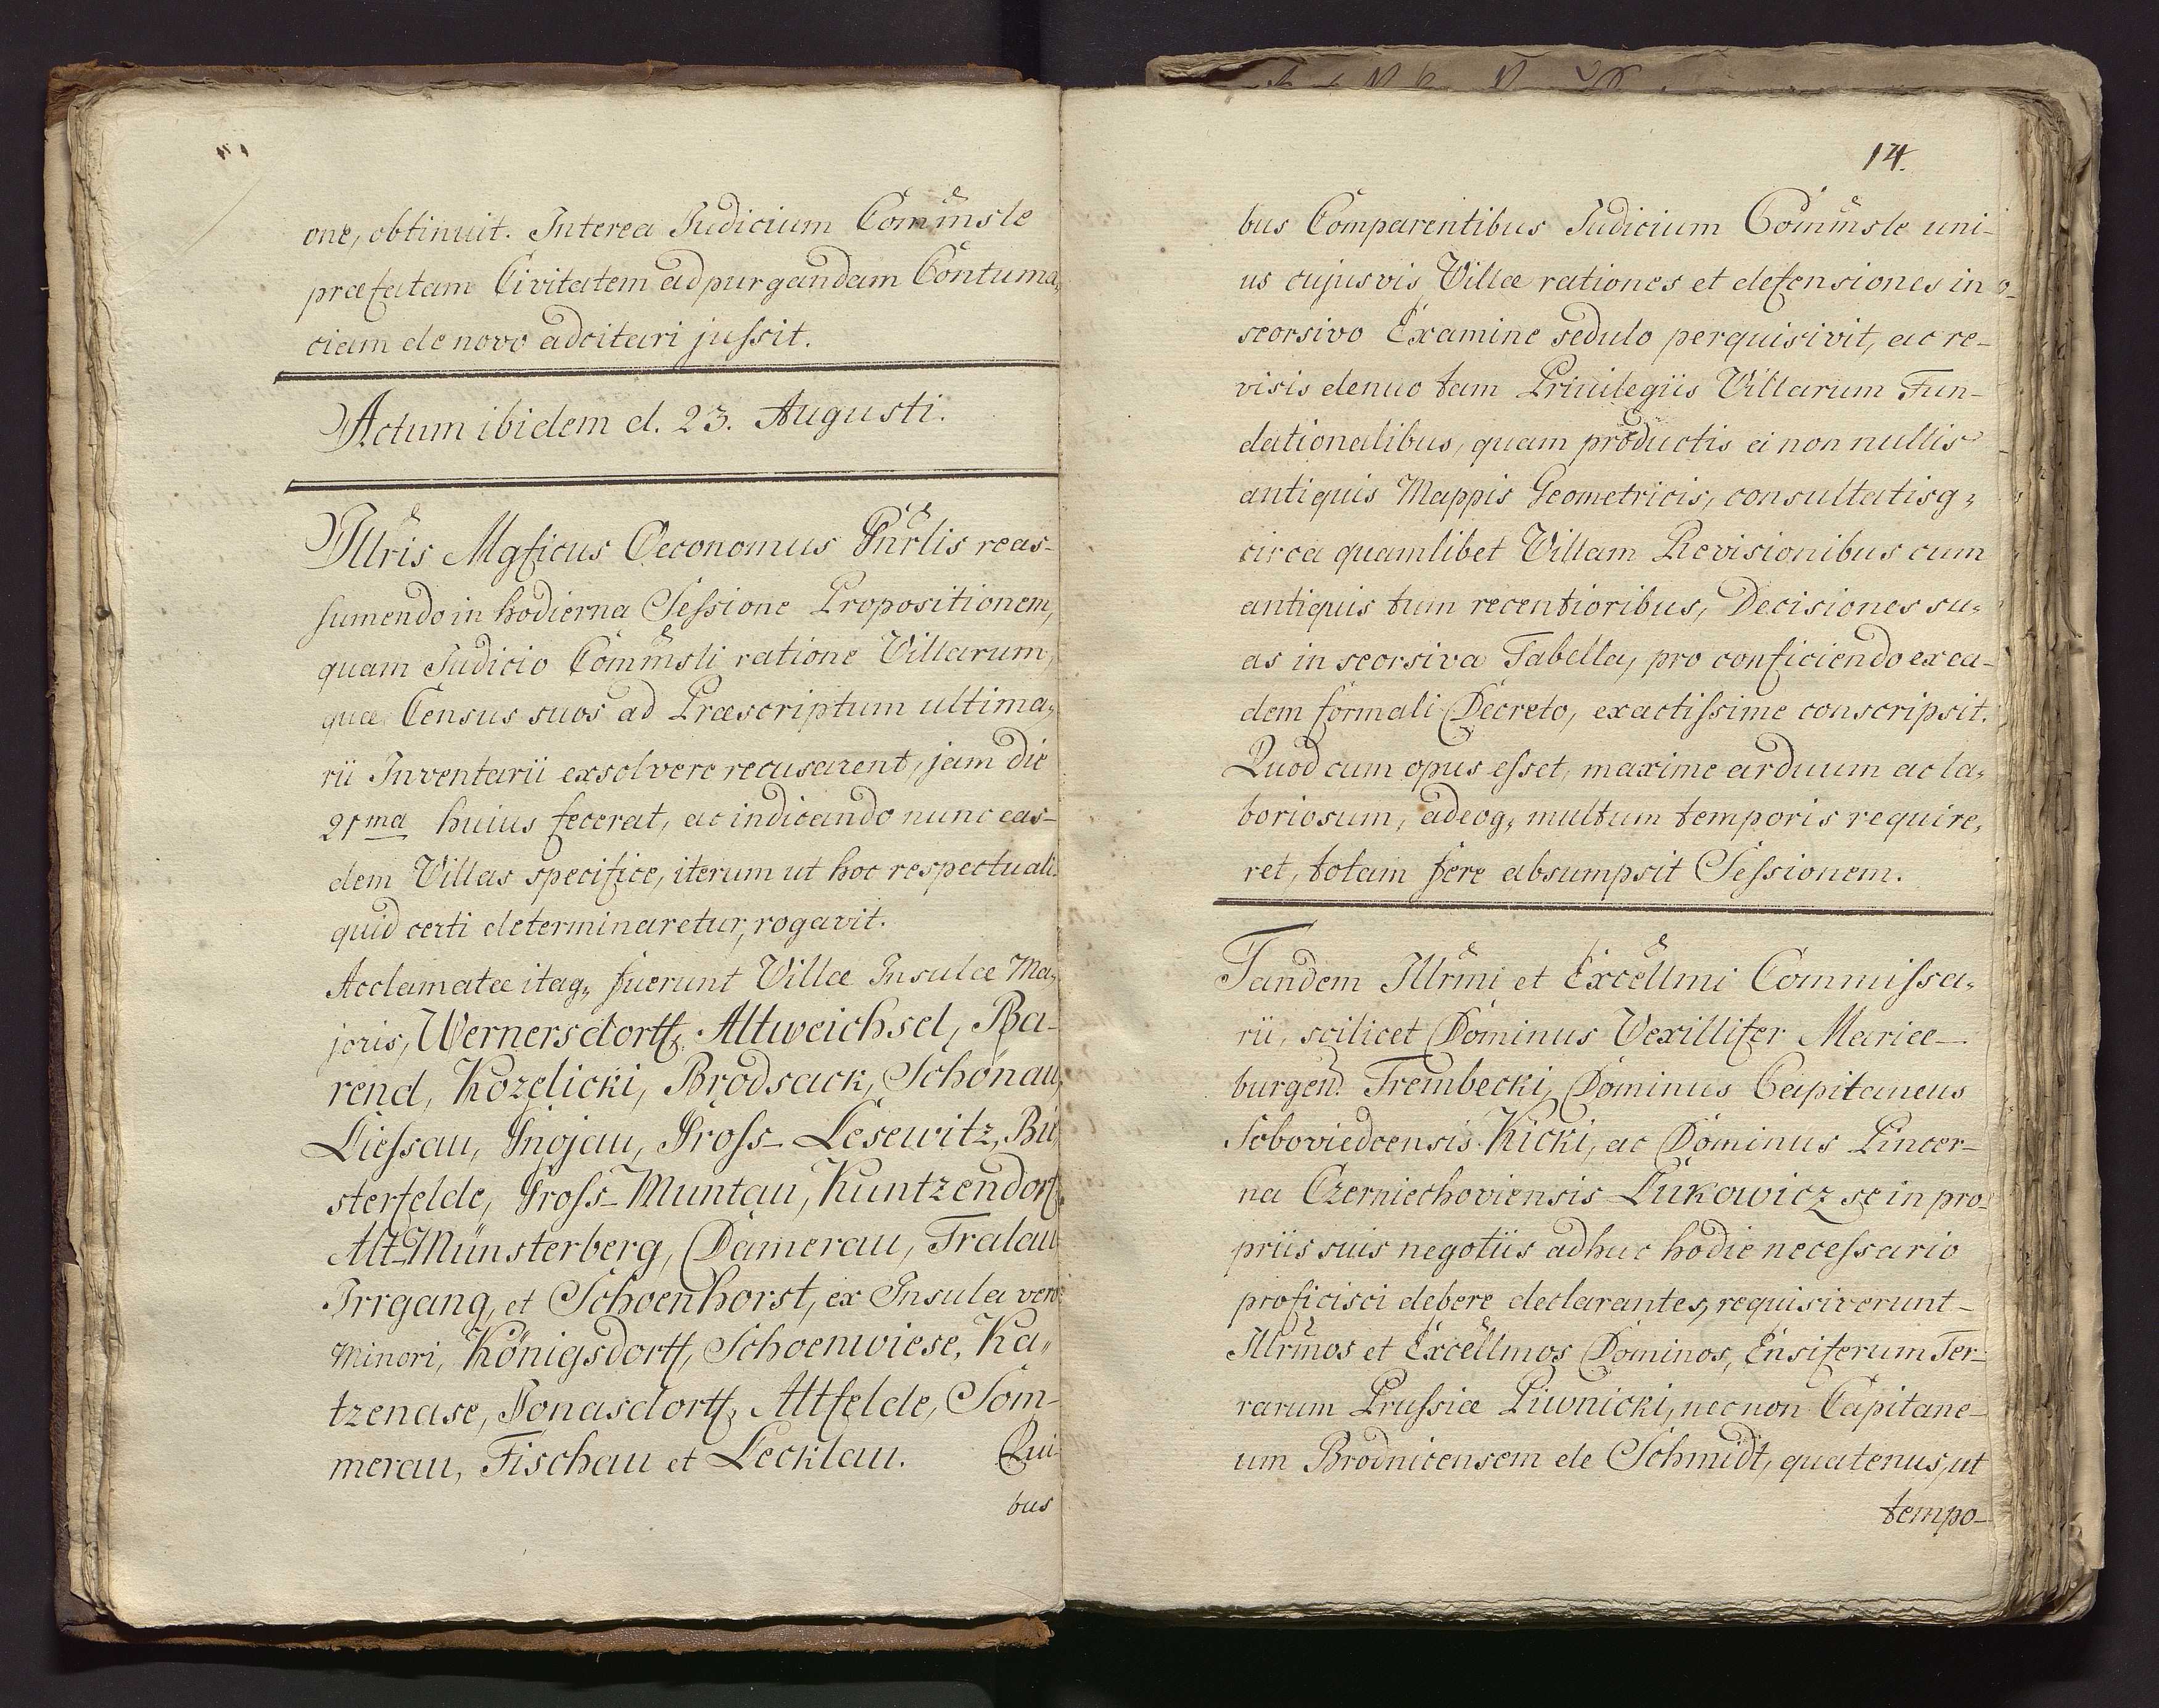 one, obtinuit. Interea Judicium Com̃m̃sle
præfatam Civitatem ad purgandam Contuma„
ciam de novo adcitari jussit.
Actum ibidem d. 23. Augusti.
Illris Mgficus Oeconomus Gnrlis reas-
sumendo in hodierna Sessione Propositionem,
quam Judicio Com̃m̃sli ratione Villarum,
quæ Census suos ad Præscriptum ultima„
rii Inventarii exsolvere recusarent, jam die
21ma huius fecerat, ac indicando nunc eas-
dem Villas specifice, iterum ut hoc respectu ali-
quid certi determinaretur, rogavit.
Acclamatæ itaq„ fuerunt Villæ Insulæ Ma„
joris, Wernersdorff, Altweichsel, Ba-
rend, Kozelicki, Brodsack, Schönau,
Liessau, Gnojau, Gross-Lesewitz, Bie
sterfelde, Gross-Muntau, Kuntzendorf,
Alt-Münsterberg, Damerau, Tralau
Irrgang, et Schoenhorst, ex Insula vero
Minori, Königsdorff, Schoenwiese, Ka„
tzenase, Jonasdorff, Altfelde, Som-
merau, Fischau et Lecklau. Qui-
bus
14.
bus Comparentibus Judicium Com̃m̃sle uni-
us cujusvis Villæ rationes et defensiones in
seorsivo Examine sedulo perquisivit, ac re-
visis denuo tam Privilegiis Villarum Fun-
dationalibus, quam productis ei non nullis
antiquis Mappis Geometricis, consultatisq„
circa quamlibet Villam Revisionibus cum
antiquis tum recentioribus, Decisiones su„
as in seorsiva Tabella, pro conficiendo ex ea-
dem formali Decreto, exactissime conscripsit.
Quod cum opus esset, maxime arduum ac la„
boriosum, adeoq„ multum temporis require„
ret, totam fere absumpsit Sessionem.
Tandem Illrmi et Excellmi Commissa„
rii, scilicet Dominus Vexillifer Mariæ-
burgen. Trembecki, Dominus Capitaneus
Soboviedcensis Kicki, ac Dominus Pincer-
na Czerniechoviensis Lukowicz se in pro-
priis suis negotiis adhuc hodie necessario
proficisci debere declarantes, requisiverunt
Illrmos et Excellmos Dominos, Ensiferum Ter-
rarum Prussiæ Piwnicki, nec non Capitane-
um Brodnicensem de Schmidt, quatenus, ut
tempo-